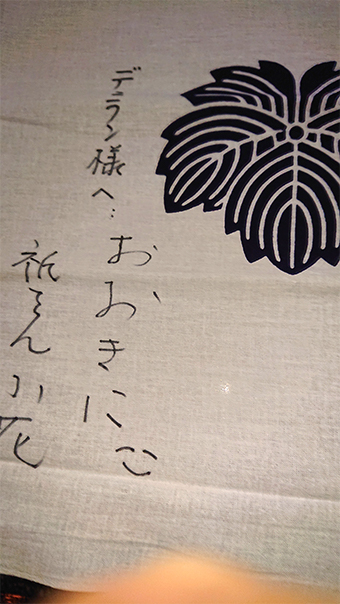 デラン様へ… おおきに
祇をん 小花